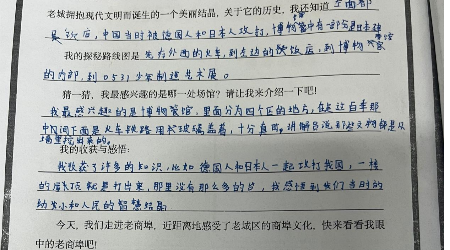 老城拥抱现代文明而诞生的一个美丽结晶，关于它的历史，我还知道
后，中国当时被德国人和日本人攻打，博物馆中有一部分
我的探秘路线图是先去外面的火车，到走边的铁饭店，到博物馆
的内部，到0531少年制造艺术展。
猜一猜，我最感兴趣的是哪一处场馆？请让我来介绍一下吧！
我最感兴趣的是博物馆，里面分为四个区的地方，在走过百年那
中间下面是火车铁路用的玻璃盖着，十分直观。讲解员说那些文物都是从
里挖出来的。
我的收获与感悟：
我收获了许多的知识，比如德国人和日本人一起攻打我国，一楼
的屋顶就是打出来，那里没有那么多的白，我感悟到我们当时的
幼小和人民的智慧结晶
今天，我们走进老商埠，近距离地感受了老城区的商埠文化，快来看看我眼
中的老商埠吧！